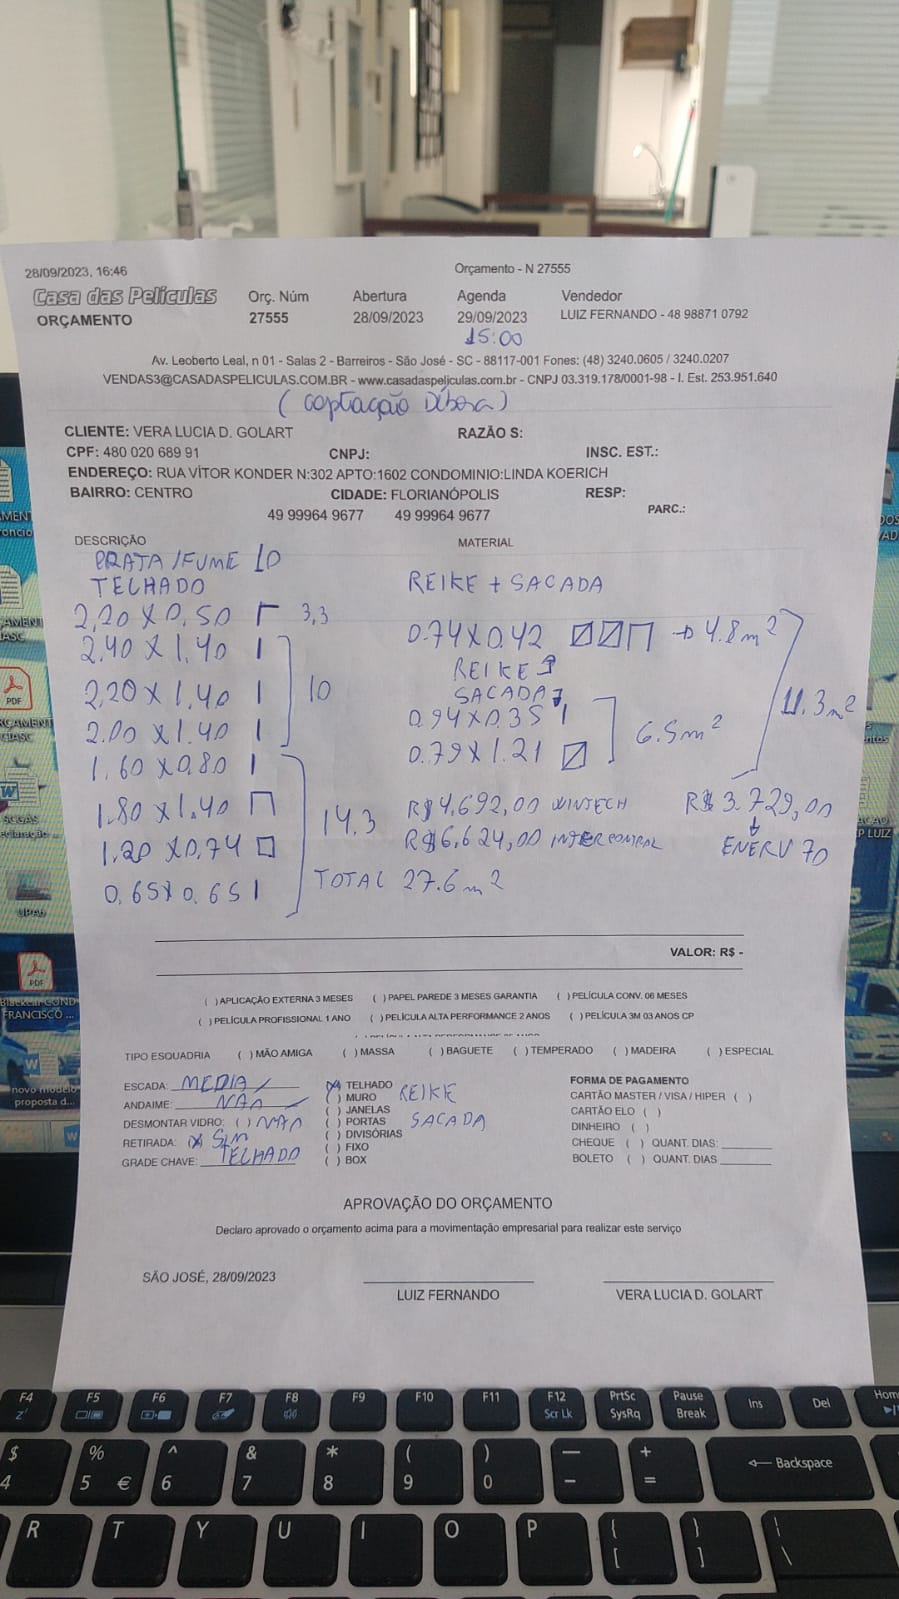 28/09/2023, 16:46
Orçamento - N 27555
Casa das Películas
ORÇAMENTO
Orç. Núm
27555
Abertura
28/09/2023
Agenda
29/09/2023
15:00
Vendedor
LUIZ FERNANDO - 48 98871 0792
Av. Leoberto Leal, n 01 - Salas 2 - Barreiros - São José - SC - 88117-001 Fones: (48) 3240.0605 / 3240.0207
VENDAS3@CASADASPELICULAS.COM.BR - www.casadaspeliculas.com.br - CNPJ 03.319.178/0001-98 - I. Est. 253.951.640
(Captação Débora)
CLIENTE: VERA LUCIA D. GOLART RAZÃO S:
CPF: 480 020 689 91 CNPJ: INSC. EST.:
ENDEREÇO: RUA VÍTOR KONDER N:302 APTO:1602 CONDOMINIO:LINDA KOERICH
BAIRRO: CENTRO CIDADE: FLORIANÓPOLIS RESP:
49 99964 9677 49 99964 9677 PARC.:
DESCRIÇÃO
PRATA/FUME 10
TELHADO
2,20 X 0,50 3,3
2,40 X 1,40
2,20 X 1,40 10
2.00 X 1.40
1,60 X 0,80
1,80 X 1,40 14,3
1,20 X 0,74
0,65 X 0,65
TOTAL 27.6 m2
MATERIAL
REIKE + SACADA
0.74 X 0.42 → 4.8 m2
REIKE
SACADA
0.94 X 0.35 6.5 m2
0.79 X 1.21
11.3 m2
R$ 4,692,00 WINTECH
R$ 6,624,00 INTERCONTROL
R$ 3.729,00
ENERV 70
VALOR: R$ -
( ) APLICAÇÃO EXTERNA 3 MESES ( ) PAPEL PAREDE 3 MESES GARANTIA ( ) PELÍCULA CONV. 06 MESES
( ) PELÍCULA PROFISSIONAL 1 ANO ( ) PELÍCULA ALTA PERFORMANCE 2 ANOS ( ) PELÍCULA 3M 03 ANOS CP
TIPO ESQUADRIA ( ) MÃO AMIGA ( ) MASSA ( ) BAGUETE ( ) TEMPERADO ( ) MADEIRA ( ) ESPECIAL
ESCADA: MEDIA
ANDAIME: NÃO
DESMONTAR VIDRO: ( ) NÃO
RETIRADA: (X) SIM
GRADE CHAVE: TELHADO
(X) TELHADO
( ) MURO REIKE
( ) JANELAS
( ) PORTAS SACADA
( ) DIVISÓRIAS
( ) FIXO
( ) BOX
FORMA DE PAGAMENTO
CARTÃO MASTER / VISA / HIPER ( )
CARTÃO ELO ( )
DINHEIRO ( )
CHEQUE ( ) QUANT. DIAS:
BOLETO ( ) QUANT. DIAS
APROVAÇÃO DO ORÇAMENTO
Declaro aprovado o orçamento acima para a movimentação empresarial para realizar este serviço
SÃO JOSÉ, 28/09/2023
LUIZ FERNANDO VERA LUCIA D. GOLART
PDF
PDF
FRANCISCO ...
novo modelo
proposta d...
F4 F5 F6 F7 F8 F9 F10 F11 F12 PrtSc Pause Ins Del Home
Scr Lk SysRq Break
$ % ^ & * ( ) — + Backspace
4 5 € 6 7 8 9 0 - =
R T Y U I O P { } |
[ ] \